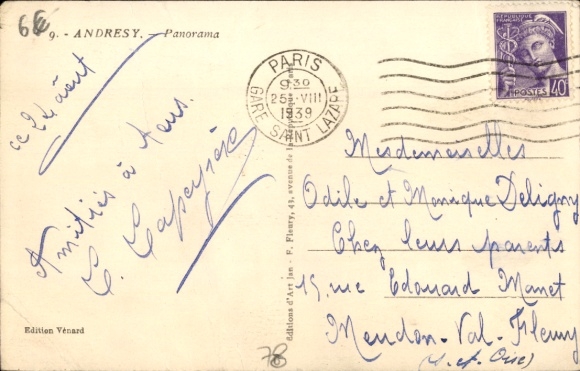 6€
9. - ANDRESY. - Panorama
ce 24 août
Amitiés à tous.
Edition Vénard
78
Editions d'Art Jan - F. Fleury, 43, avenue de la République
PARIS
9 30
25 VIII
1939
GARE SAINT LAZARE
REPUBLIQUE FRANÇAISE
POSTES
40
Mesdemoiselles
Odile et Monique Deligny
Chez leurs parents
15, rue Edouard Manet
Meudon-Val-Fleury
(S.-et-Oise)